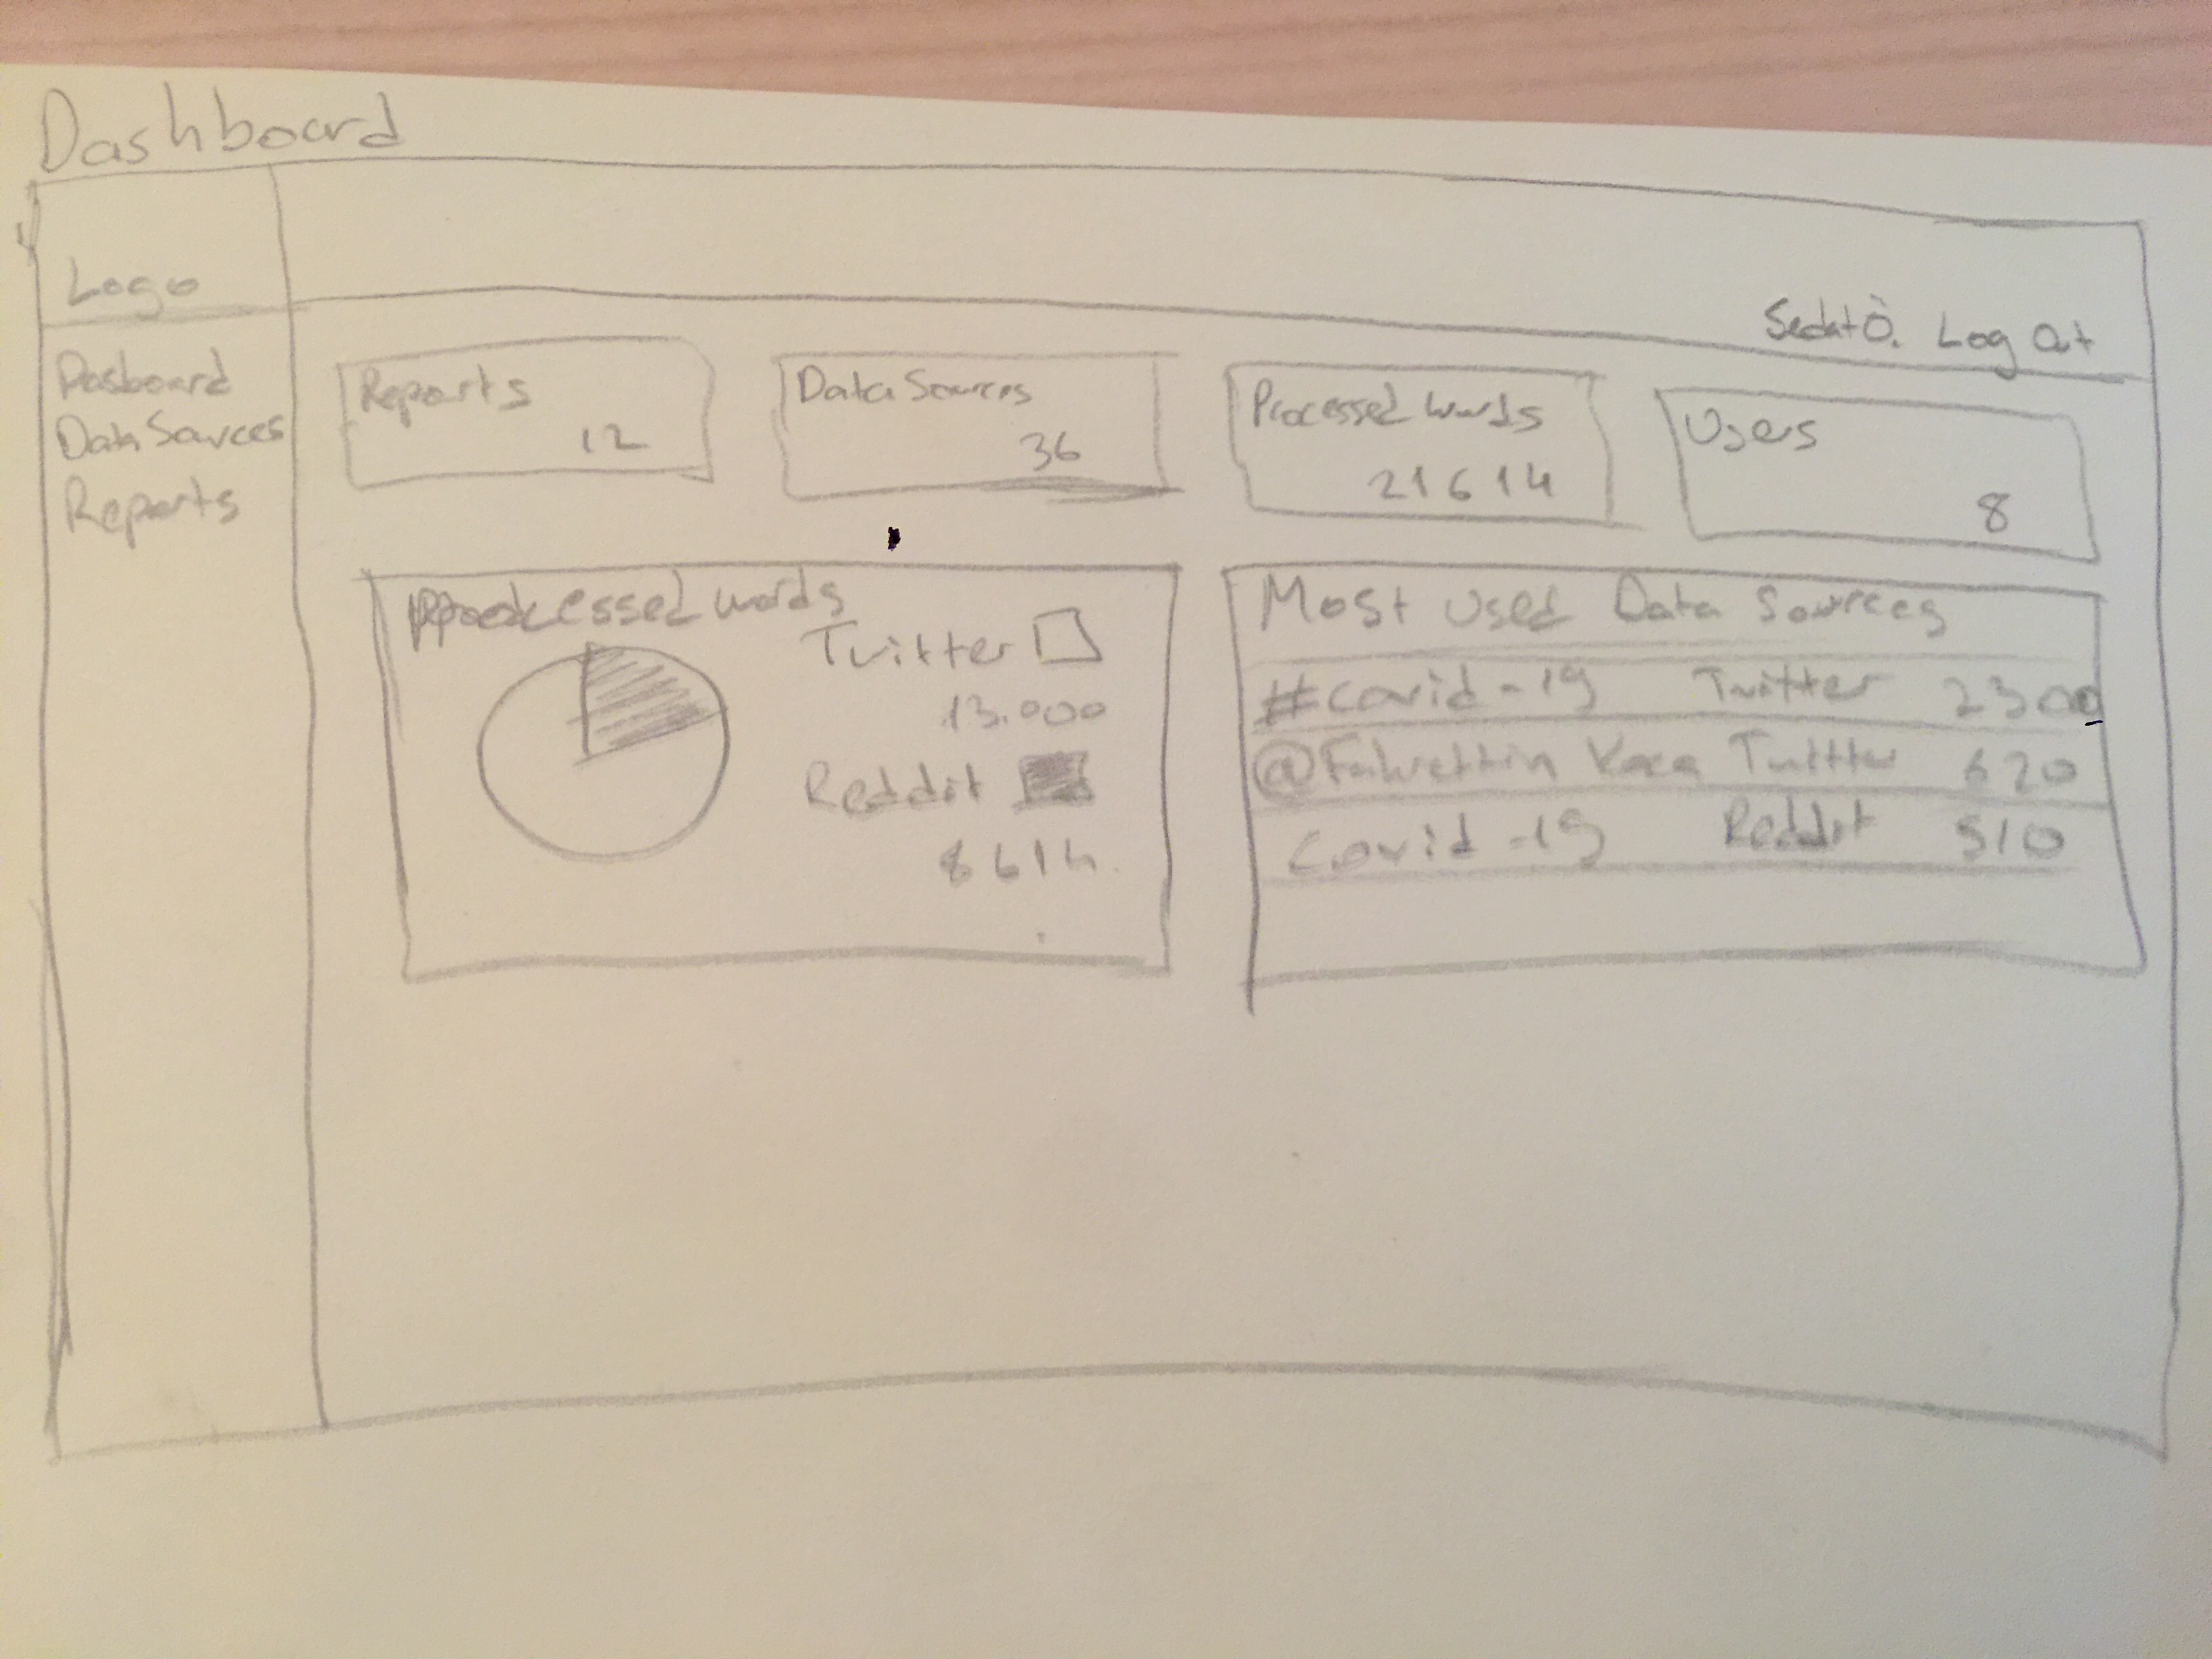 Dashboard
Logo
Sedat Ö. Log Out
Dasboard
Data Sources
Reports
Reports
12
Data Sources
36
Processed words
21614
Users
8
Processed words
Twitter
13.000
Reddit
8614
Most Used Data Sources
#covid-19 Twitter 2300
@Fahrettin Koca Twitter 620
Covid-19 Reddit 510